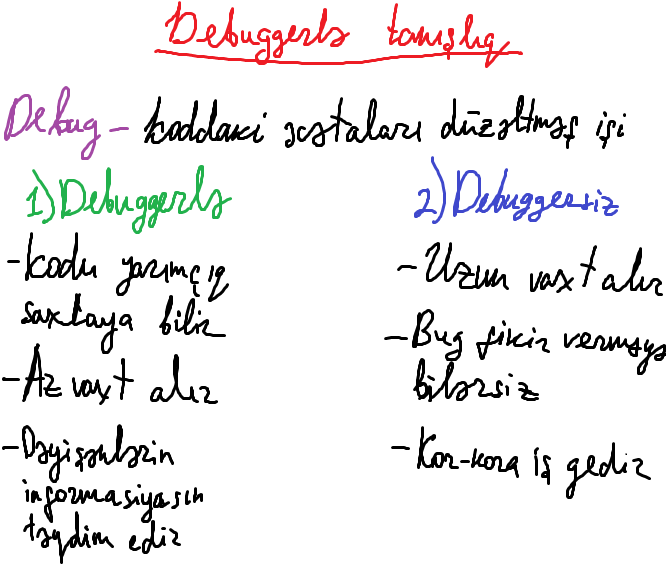 Debuggerlə tanışlıq
Debug - koddaki xətaları düzəltmək işi
1) Debuggerlə
- Kodu yarımçıq
saxlaya bilir
- Az vaxt alır
- Dəyişənlərin
informasiyasın
təqdim edir
2) Debuggersiz
- Uzun vaxt alır
- Bug fikir verməyə
bilərsiz
- Kor-kora iş gedir